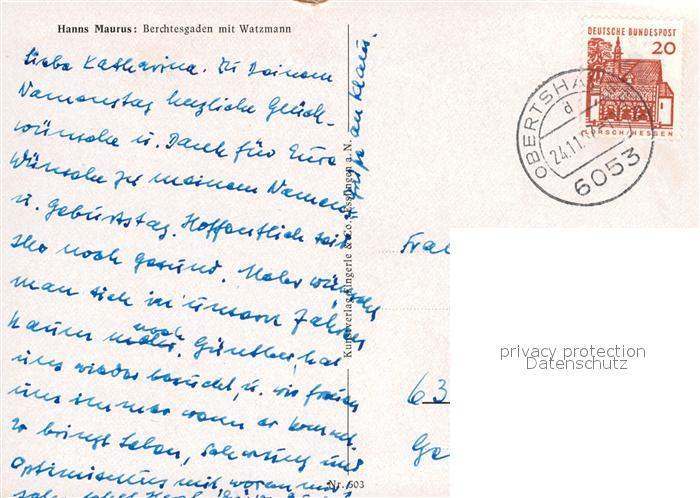 Hanns Maurus: Berchtesgaden mit Watzmann
Liebe Katharina. Zu Deinem
Namenstag herzliche Glück-
wünsche u. Dank für Eure
Wünsche zu meinem Namens
u. Geburtstag. Hoffentlich seid
Ihr noch gesund. Mehr wünscht
man sich in unsern Jahren
kaum noch. Günther hat
uns wieder besucht, u. wir freuen
uns immer wenn er kommt.
Er bringt Leben, Schwung und
Optimismus mit, wovon
an Klaus.
Kunstverlag Ringerle & Co. Esslingen a. N.
Nr. 603
DEUTSCHE BUNDESPOST
20
LORSCH/HESSEN
OBERTSHA
d
24.11.
6053
Frau
63
Ge
privacy protection
Datenschutz